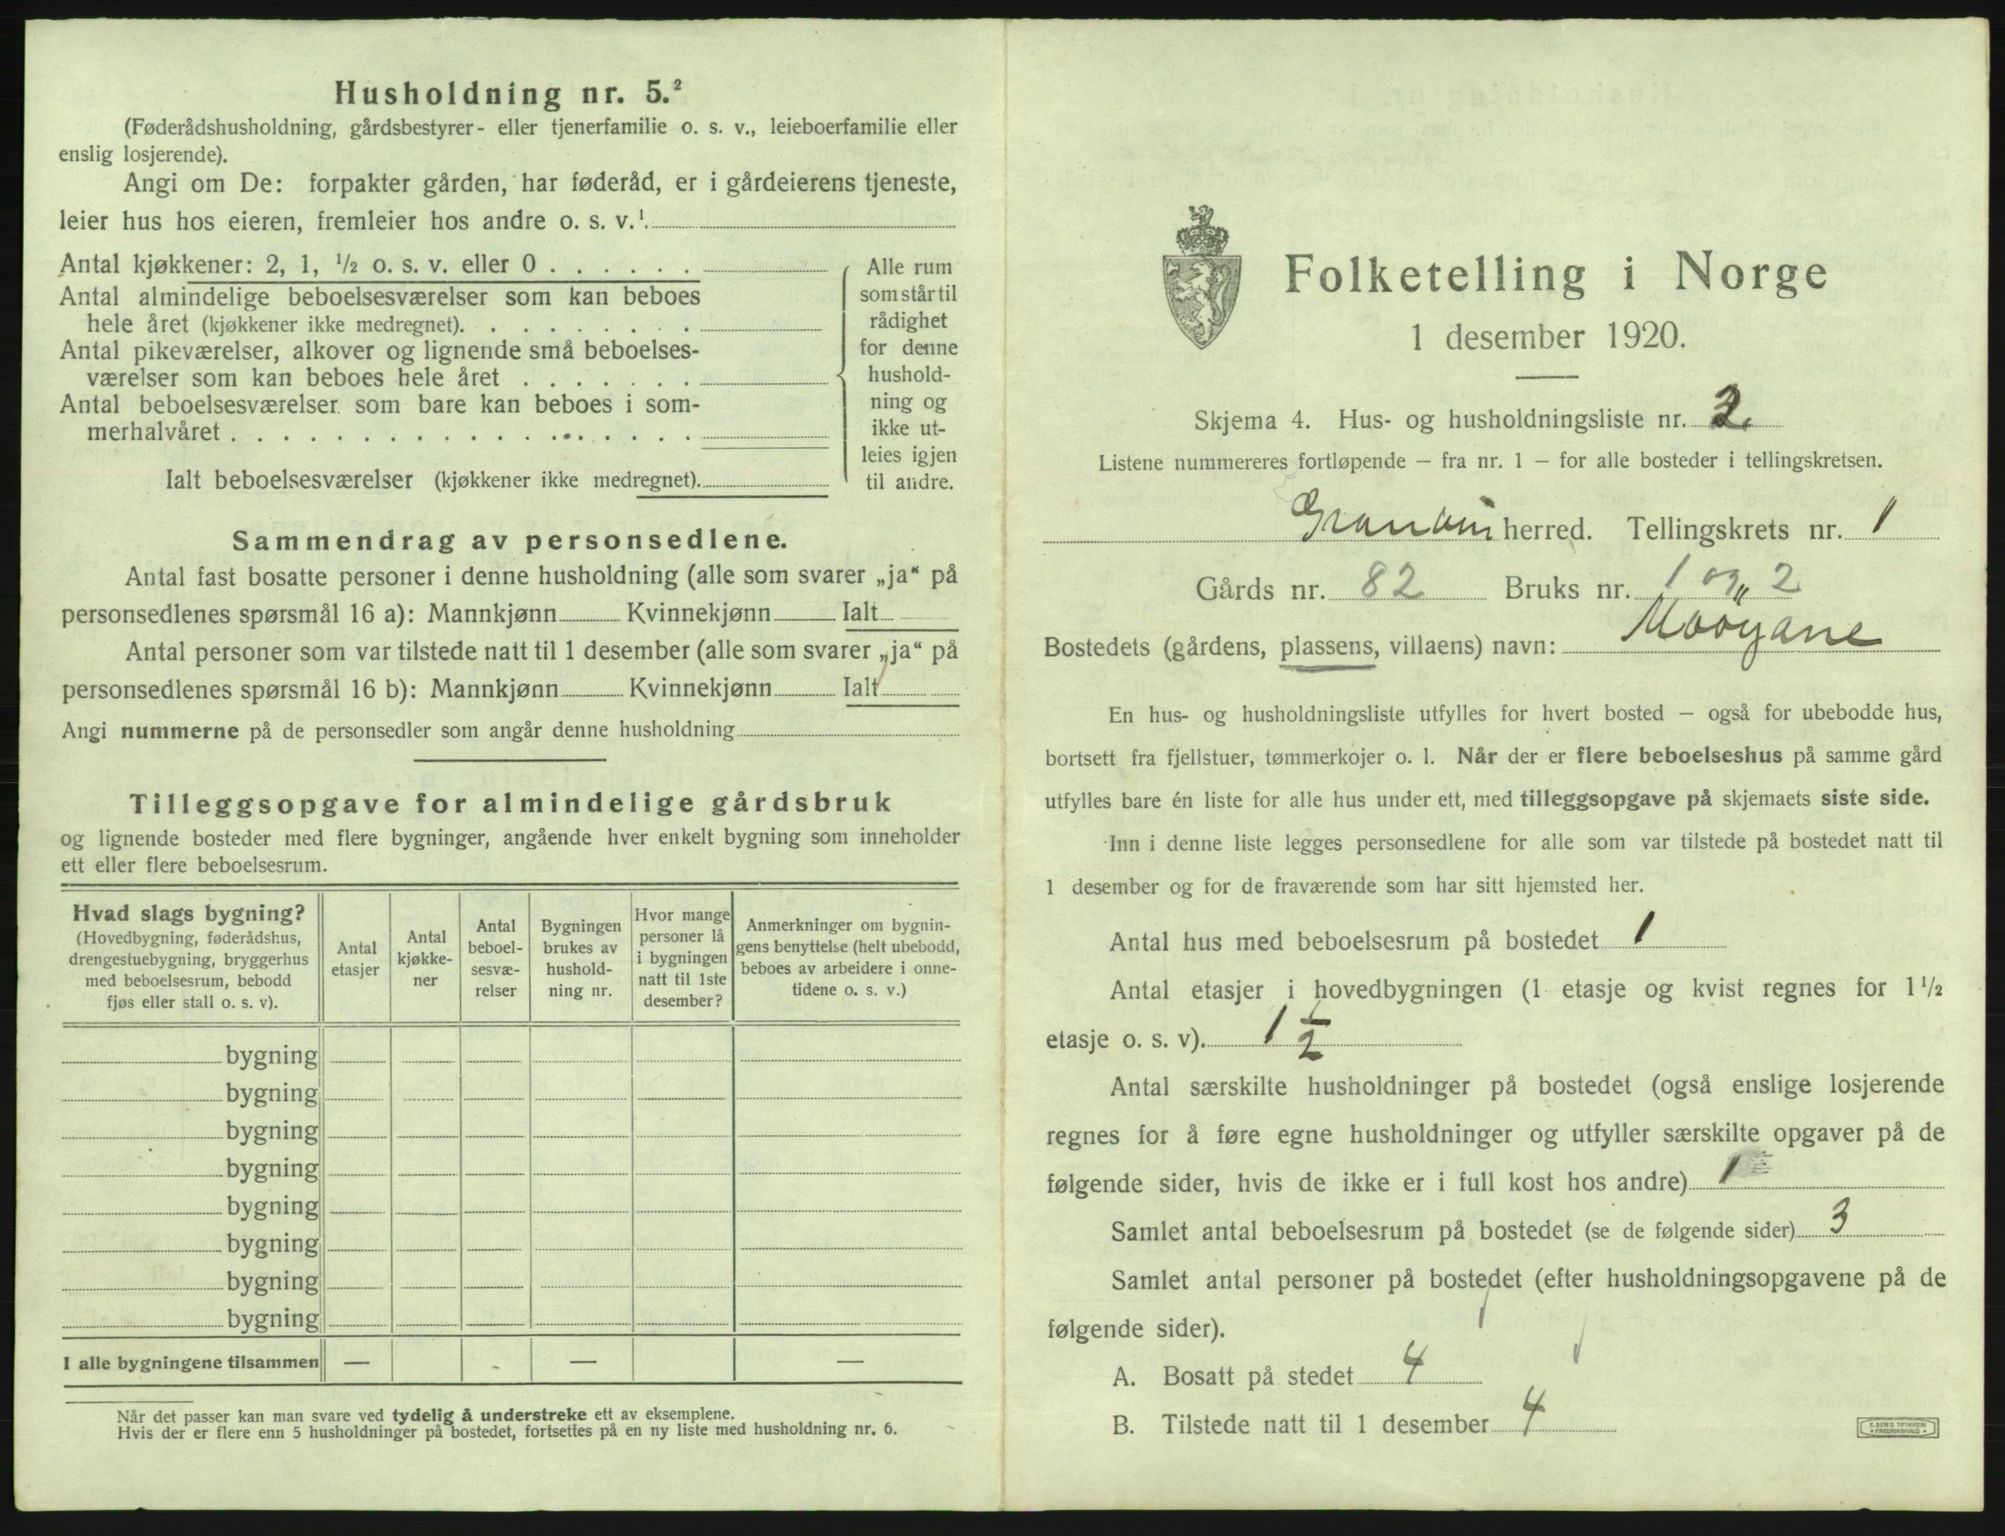 Husholdning nr. 5.²
(Føderådshusholdning, gårdsbestyrer- eller tjenerfamilie o. s. v., leieboerfamilie eller
enslig losjerende).
Angi om De: forpakter gården, har føderåd, er i gårdeierens tjeneste,
leier hus hos eieren, fremleier hos andre o. s. v.¹
Antal kjøkkener: 2, 1, ½ o. s. v. eller 0
Antal almindelige beboelsesværelser som kan beboes
hele året (kjøkkener ikke medregnet).
Antal pikeværelser, alkover og lignende små beboelses-
værelser som kan beboes hele året
Antal beboelsesværelser som bare kan beboes i som-
merhalvåret
Ialt beboelsesværelser (kjøkkener ikke medregnet).
Alle rum
som står til
rådighet
for denne
hushold-
ning og
ikke ut-
leies igjen
til andre.
Sammendrag av personsedlene.
Antal fast bosatte personer i denne husholdning (alle som svarer „ja“ på
personsedlenes spørsmål 16 a): Mannkjønn Kvinnekjønn Ialt
Antal personer som var tilstede natt til 1 desember (alle som svarer „ja“ på
personsedlenes spørsmål 16 b): Mannkjønn Kvinnekjønn Ialt
Angi nummerne på de personsedler som angår denne husholdning
Tilleggsopgave for almindelige gårdsbruk
og lignende bosteder med flere bygninger, angående hver enkelt bygning som inneholder
ett eller flere beboelsesrum.
Hvad slags bygning?
(Hovedbygning, føderådshus,
drengestuebygning, bryggerhus
med beboelsesrum, bebodd
fjøs eller stall o. s. v).
Antal
etasjer
Antal
kjøkke-
ner
Antal
beboel-
sesvæ-
relser
Bygningen
brukes av
hushold-
ning nr.
Hvor mange
personer lå
i bygningen
natt til 1ste
desember?
Anmerkninger om bygnin-
gens benyttelse (helt ubebodd,
beboes av arbeidere i onne-
tidene o. s. v.)
bygning
bygning
bygning
bygning
bygning
bygning
bygning
bygning
I alle bygningene tilsammen — — —
Når det passer kan man svare ved tydelig å understreke ett av eksemplene.
Hvis der er flere enn 5 husholdninger på bostedet, fortsettes på en ny liste med husholdning nr. 6.
Folketelling i Norge
1 desember 1920.
Skjema 4. Hus- og husholdningsliste nr. 2.
Listene nummereres fortløpende — fra nr. 1 — for alle bosteder i tellingskretsen.
Granvin herred. Tellingskrets nr. 1
Gårds nr. 82 Bruks nr. 1 og 2
Bostedets (gårdens, plassens, villaens) navn:
En hus- og husholdningsliste utfylles for hvert bosted — også for ubebodde hus,
bortsett fra fjellstuer, tømmerkojer o. l. Når der er flere beboelseshus på samme gård
utfylles bare én liste for alle hus under ett, med tilleggsopgave på skjemaets siste side.
Inn i denne liste legges personsedlene for alle som var tilstede på bostedet natt til
1 desember og for de fraværende som har sitt hjemsted her.
Antal hus med beboelsesrum på bostedet 1
Antal etasjer i hovedbygningen (1 etasje og kvist regnes for 1½
etasje o. s. v). 1 ½
Antal særskilte husholdninger på bostedet (også enslige losjerende
regnes for å føre egne husholdninger og utfyller særskilte opgaver på de
følgende sider, hvis de ikke er i full kost hos andre) 1
Samlet antal beboelsesrum på bostedet (se de følgende sider) 3
Samlet antal personer på bostedet (efter husholdningsopgavene på de
følgende sider).
A. Bosatt på stedet 4
B. Tilstede natt til 1 desember 4